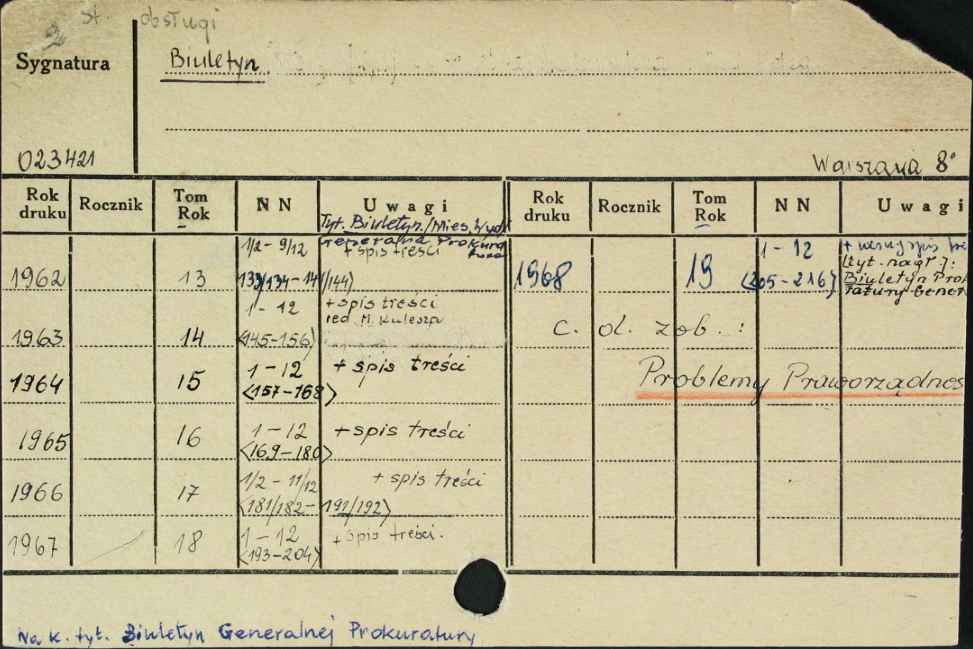 st. obsługi
Sygnatura
Biuletyn
023421
Warszawa 8°
Rok druku Rocznik Tom Rok NN Uwagi Rok druku Rocznik Tom Rok NN Uwagi
Tyt. Biuletyn /Mies. Wyd.
Generalna Prokura
1962 13 1/2 - 9/12 + spis treści
133/134 - 141/144)
1963 14 1 - 12 + spis treści
<145-156) red M. Kulesza
1964 15 1 - 12 + spis treści
<157-168>
1965 16 1 - 12 + spis treści
<169-180>
1966 17 1/2 - 11/12 + spis treści
<181/182 - 191/192>
1967 18 1 - 12 + spis treści.
<193-204>
1968 19 1 - 12 + spis
<205-216> [tyt. nagł.]:
Biuletyn Prok
ratury Gener
c. d. zob. :
Problemy Praworządnoś
Na k. tyt. Biuletyn Generalnej Prokuratury